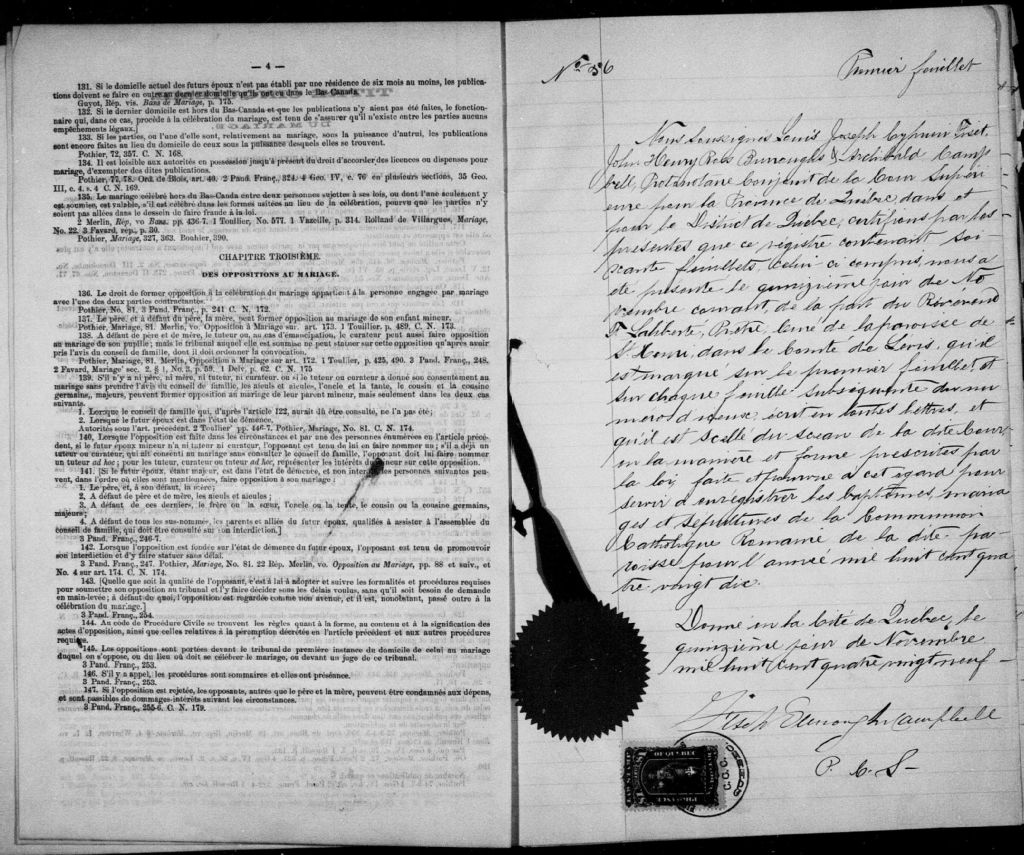 — 4 —
131. Si le domicile actuel des futurs époux n'est pas établi par une résidence de six mois au moins, les publica-
tions doivent se faire en outre au dernier domicile qu'ils ont eu dans le Bas-Canada.
Guyot, Rép. vis. Bans de Mariage, p. 175.
132. Si le dernier domicile est hors du Bas-Canada et que les publications n'y aient pas été faites, le fonction-
naire qui, dans ce cas, procède à la célébration du mariage, est tenu de s'assurer qu'il n'existe entre les parties aucuns
empêchements légaux.]
133. Si les parties, ou l'une d'elle sont, relativement au mariage, sous la puissance d'autrui, les publications
sont encore faites au lieu du domicile de ceux sous la puissance desquels elles se trouvent.
Pothier, 72, 357. C. N. 168.
134. Il est loisible aux autorités en possession jusqu'à présent du droit d'accorder des licences ou dispenses pour
mariage, d'exempter des dites publications.
Pothier, 77, 78. Ord. de Blois, art. 40. 2 Pand. Franç., 324. 4 Geo. IV, c. 76 en plusieurs sections, 35 Geo.
III, c. 4. s. 4 C. N. 169.
135. Le mariage célébré hors du Bas-Canda entre deux personnes sujettes à ses lois, ou dont l'une seulement y
est soumise, est valable, s'il est célébré dans les formes usitées au lieu de la célébration, pourvu que les parties n'y
soient pas allées dans le dessein de faire fraude à la loi.
2 Merlin, Rép, vo Bans. pp. 436-7. 1 Toullier, No. 577. 1 Vazeille, p. 314. Rolland de Villargues, Mariage,
No. 22. 3 Favard, rép., p. 30.
Pothier, Mariage, 327, 363. Bouhier, 390.
CHAPITRE TROISIÈME.
DES OPPOSITIONS AU MARIAGE.
136. Le droit de former opposition à la célébration du mariage appartient à la personne engagée par mariage
avec l'une des deux parties contractantes.
Pothier, No. 81. 3 Pand. Franç., p. 241 C. N. 172.
137. Le père, et à défaut du père, la mère, peut former opposition au mariage de son enfant mineur.
Pothier, Mariage, 81. Merlin, vo. Opposition à Mariage sur. art. 173. 1 Touillier, p. 489. C. N. 173.
138. A défaut de père et de mère, le tuteur ou, en cas d'émancipation, le curateur peut aussi faire opposition
au mariage de son pupille; mais le tribunal auquel elle est soumise ne peut statuer sur cette opposition qu'après avoir
pris l'avis du conseil de famille, dont il doit ordonner la convocation.
Pothier, Mariage, 81. Merlin, Opposition à Mariage sur art. 172. 1 Toullier, p. 425, 490. 3 Pand. Franç., 248,
2 Favard, Mariage' sec. 2. § 1, No. 3, p. 59. 1 Delv, p. 62. C. N. 175
139. S'il n'y a ni père, ni mère, ni tuteur, ni curateur, ou si le tuteur ou curateur a donné son consentement au
mariage sans prendre l'avis du conseil de famille, les aïeuls et aïeules, l'oncle et la tante, le cousin et la cousine
germains, majeurs, peuvent former opposition au mariage de leur parent mineur, mais seulement dans les deux cas
suivants.
1. Lorsque le conseil de famille qui, d'après l'article 122, aurais dû être consulté, ne l'a pas été;
2. Lorsque le futur époux est dans l'état de démence,
Autorités sous l'art. précédent. 2 Toullier pp. 446-7. Pothier, Mariage, No. 81. C. N. 174.
140. Lorsque l'opposition est faite dans les circonstances et par une des personnes énumérées en l'article précé-
dent, si le futur époux mineur n'a ni tuteur ni curateur, l'opposant est tenu de lui en faire nommer un; s'il a déjà un
tuteur ou curateur, qui ait consenti au mariage sans consulter le conseil de famille, l'opposant doit lui faire nommer
un tuteur ad hoc; pour les tuteur, curateur ou tuteur ad hec, représenter les intérêts du mineur sur cette opposition.
141. [Si le futur époux, étant majeur, est dans l'état de démence, et non interdit, les personnes suivantes peu-
vent, dans l'ordre où elles sont mentionnées, faire opposition à son mariage :
1. Le père, et, à son défaut, la mère;
2. A défaut de père et de mère, les aïeuls et aïeules;
3. A défaut de ces derniers, le frère ou la sœur, l'oncle ou la tante, le cousin ou la cousine germains,
majeurs;
4. A défaut de tous les sus-nommés, les parents et alliés du futur époux, qualifiés à assister à l'assemblée du
conseil de famille, qui doit être consulté sur son interdiction.]
3 Pand. Franç., 246-7.
142. Lorsque l'opposition est fondée sur l'état de démence du futur époux, l'opposant est tenu de promouvoir
son interdiction et d'y faire statuer sans délai.
3 Pand. Franç., 247. Pothier, Mariage, No. 81. 22 Rép. Merlon, vo. Opposition au Mariage, pp. 88 et suiv., et
No. 4 sur art. 174. C. N. 174.
143. [Quelque soit la qualité de l'opposant, c'est à lui à adopter et suivre les formalités et procédures requises
pour soumettre son opposition au tribunal et l'y faire décider sous les délais voulus, sans qu'il soit besoin de demande
en main-levée; à défaut de quoi, l'opposition est regardée comme non avenue, et il est, nonobstant, passé outre à la
célébration du mariage.]
3 Pand. Franç., 254.
144. Au code de Procédure Civile se trouvent les règles quant à la forme, au contenu et à la signification des
actes d'opposition, ainsi que celles relatives à la péremption décrétée en l'article précédent et aux autres procédures
requise.
145. Les oppositions sont portées devant le tribunal de première instance du domicile de celui au mariage
duquel on s'oppose, ou du lieu où doit se célébrer le mariage, ou devant un juge de ce tribunal.
3 Pand. Franç., 253.
146. S'il y a appel, les procédures sont sommaires et elles ont préséance.
3 Pand. Franç., 253.
147. Si l'opposition est rejetée, les opposants, autres que le père et la mère, peuvent être condamnés aux dépens,
et sont passibles de dommages-intérêts suivant les circonstances.
3 Pand. Franç., 255-6. C. N. 179.
No 56
Premier feuillet
Nous Soussignés Louis Joseph Cyprien Fiset,
John Henry Ross Burroughs & Archibald Camp
bell, Protonotaire Conjoint de la Cour Supéri
eure pour la Province de Québec dans et
pour le District de Québec, certifions par les
présentes que ce régistre contenant soi-
xante feuillets, celui ci compris, nous a
été présenté le quinzième jour de No
vembre courant, de la part du Révérend
F. Laliberté, Prêtre, Curé de la paroisse de
St. Henri, dans le Comté de Lévis, qu'il
est marqué sur le premier feuillet et
sur chaque feuille subséquente du nu
méro d'iceux, écrit en toutes lettres, et
qu'il est scellé du sceau de la dite Cour
en la manière et forme prescrites par
la loi, faite et pourvue à cet égard pour
servir à enregistrer les baptêmes, maria
ges et sépultures de la Communion
Catholique Romaine de la dite pa
roisse pour l'année mil huit cent qua
tre vingt dix.
Donné en la Cité de Québec, le
quinzième jour de Novembre
mil huit cent quatre vingt neuf
Fiset Burroughs Campbell
P. C. S—
LAW STAMP
OF QUEBEC
PROVINCE
C.C.C.